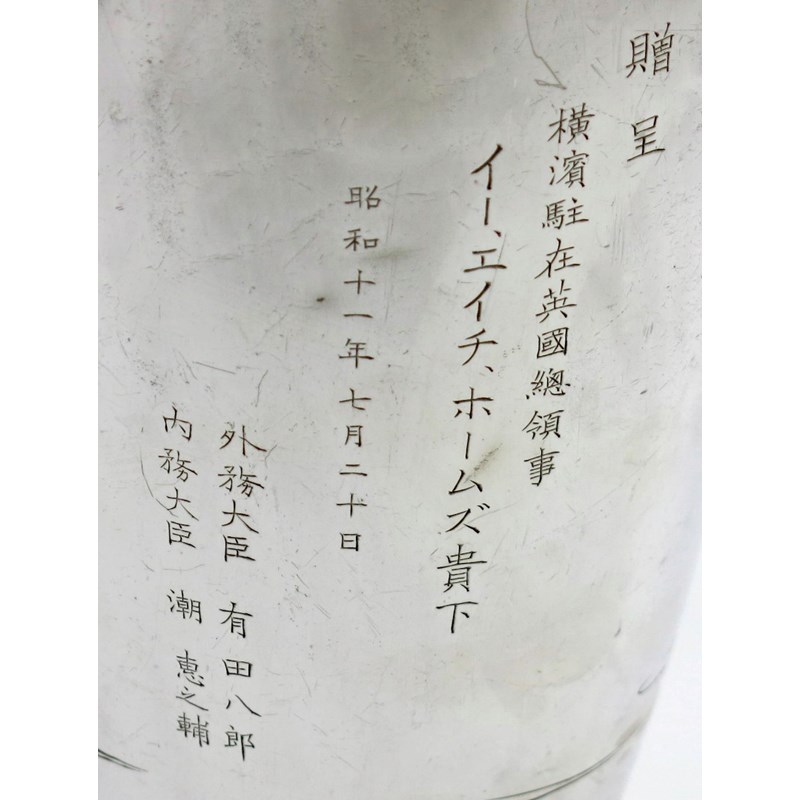 贈呈
横濱駐在英國總領事
イー、エイチ、ホームズ貴下
昭和十一年七月二十日
外務大臣 有田八郎
内務大臣 潮惠之輔